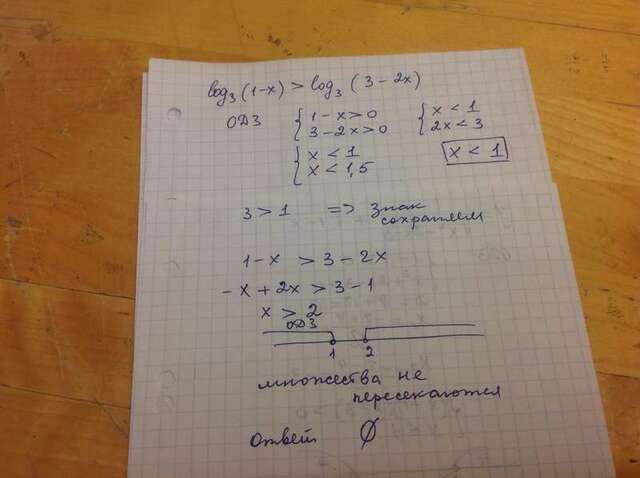 log₃(1-x) > log₃(3-2x)
ОДЗ { 1-x>0 { x<1
3-2x>0 2x<3
{ x<1 x<1
x<1,5
3>1 => знак
сохраняем
1-x > 3-2x
-x+2x > 3-1
x > 2
ОДЗ
1 2
множества не
пересекаются
ответ ∅